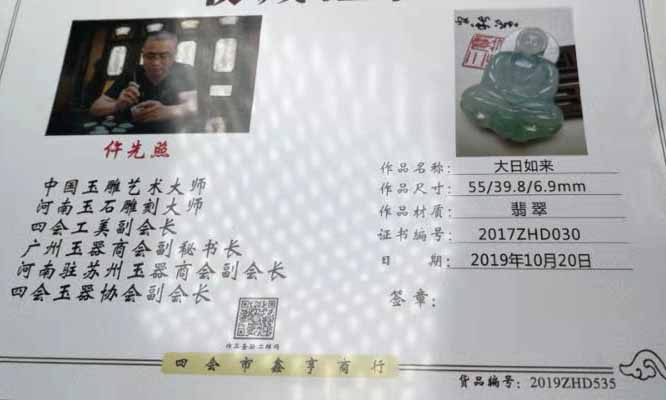 仵先照
中国玉雕艺术大师
河南玉石雕刻大师
四会工美副会长
广州玉器商会副秘书长
河南驻苏州玉器商会副会长
四会玉器协会副会长
作品名称: 大日如来
作品尺寸: 55/39.8/6.9mm
作品材质: 翡翠
证书编号: 2017ZHD030
日 期: 2019年10月20日
签章:
四会市鑫亨商行
货品编号: 2019ZHD535